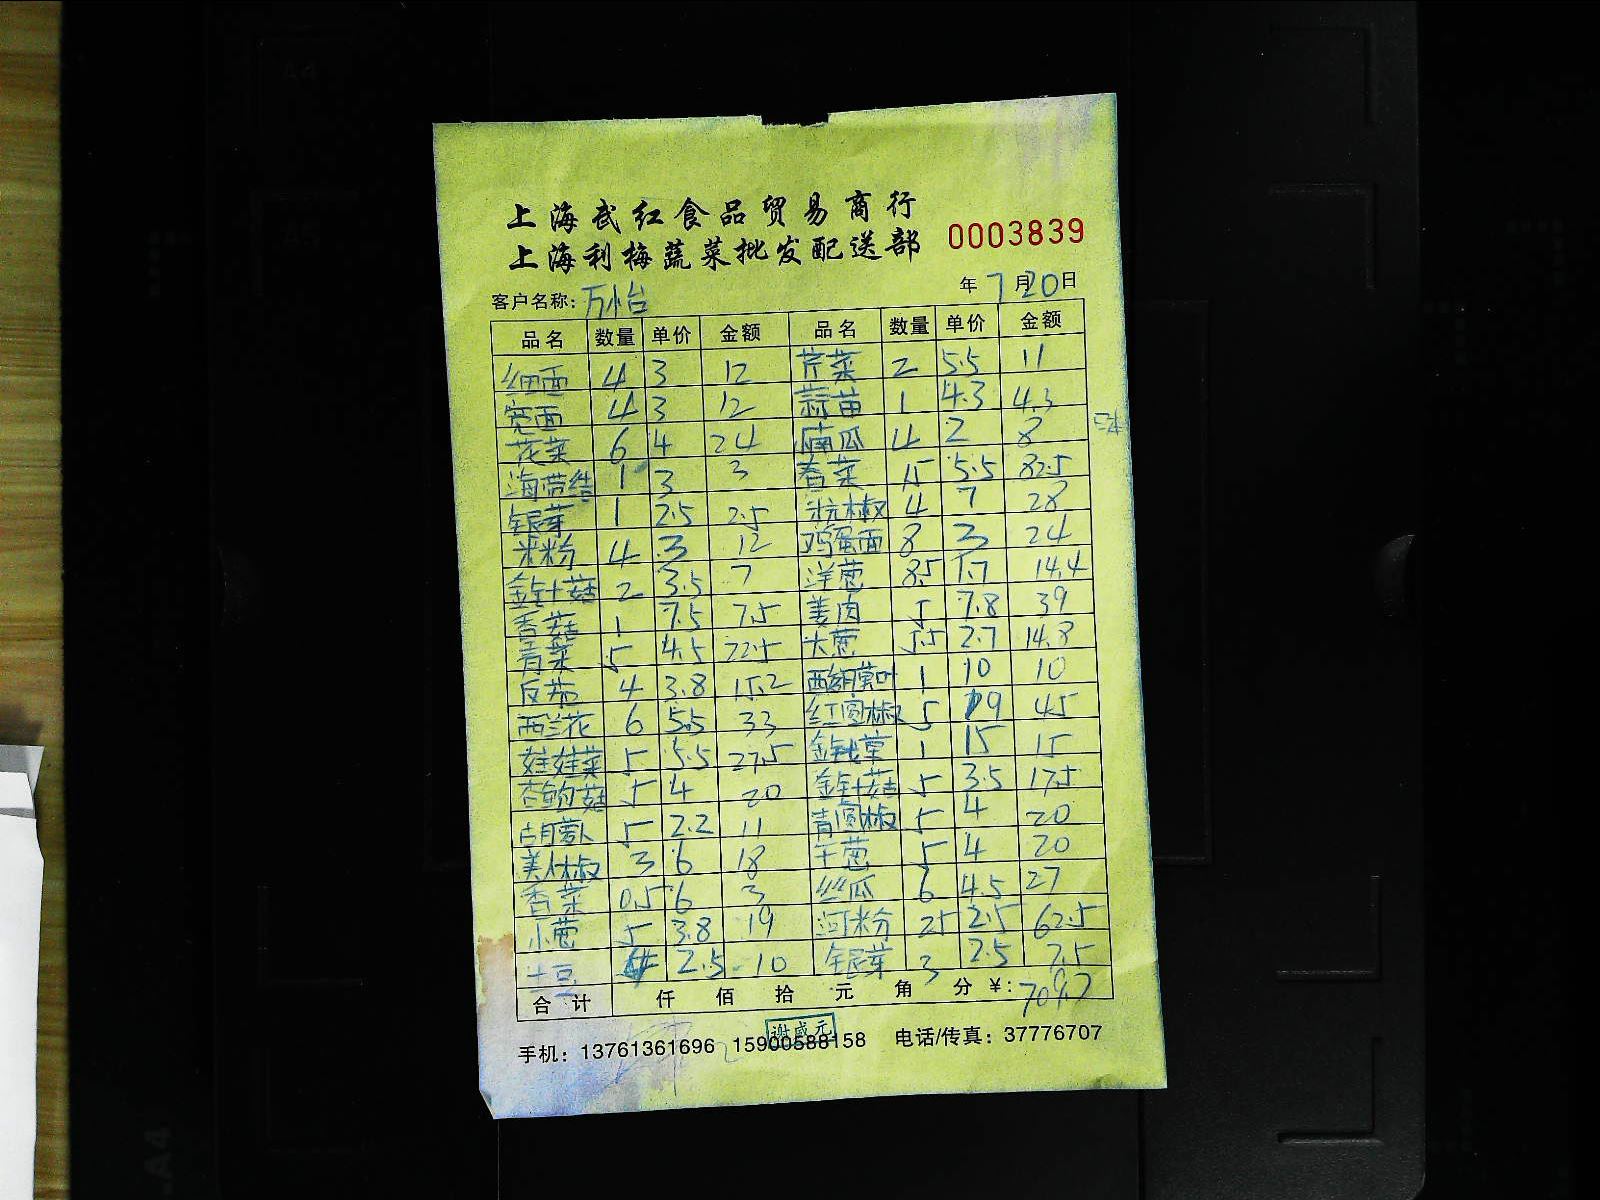 上海武红食品贸易商行
上海利梅蔬菜批发配送部
0003839
客户名称：万怡 年 7月20日
品名 数量 单价 金额 品名 数量 单价 金额
细面 4 3 12 芹菜 2 5.5 11
宽面 4 3 12 蒜苗 1 4.3 4.3
花菜 6 4 24 南瓜 4 2 8
海带结 1 3 3 卷菜 15 5.5 82.5
银芽 1 2.5 2.5 杭椒 4 7 28
米粉 4 3 12 鸡蛋面 8 3 24
金针菇 2 3.5 7 洋葱 8.5 1.7 14.4
香菇 1 7.5 7.5 姜肉 5 7.8 39
青菜 5 4.5 22.5 大葱 5.5 2.7 14.8
反茄 4 3.8 15.2 叶 1 10 10
西兰花 6 5.5 33 红圆椒 5 9 45
娃娃菜 5 5.5 27.5 金钱草 1 15 15
杏鲍菇 5 4 20 金针菇 5 3.5 17.5
胡萝卜 5 2.2 11 青圆椒 5 4 20
美人椒 3 6 18 干葱 5 4 20
香菜 0.5 6 3 丝瓜 6 4.5 27
小葱 5 3.8 19 河粉 25 2.5 62.5
土豆 4 2.5 10 银芽 3 2.5 7.5
合计 仟 佰 拾 元 角 分 ¥: 709.7
谢盛元
手机：13761361696 15900588158 电话/传真：37776707